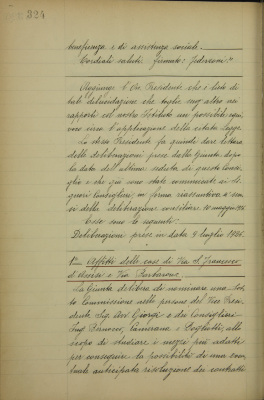 324
beneficenza e di assistenza sociale.
Cordiali saluti. firmato: Federzoni."
Aggiunge l'On. Presidente che è stata
tale deliberazione che toglie ogni altro
rapporti col nostro Istituto
circa l'applicazione della citata legge.
Lo stesso Presidente fa quindi dare lettura
delle deliberazioni prese dalla Giunta dopo
la data dell'ultima seduta di questo Consi-
glio e che già sono state comunicate ai Si-
gnori Consiglieri in forma riassuntiva a sen-
si della deliberazione consiliare 10 maggio
Esse sono le seguenti:
Deliberazioni prese in data 9 luglio 1926.
Affitto delle case di Via S. Francesco
d'Assisi e Via Barbaroux.
La Giunta delibera di nominare una
Commissione nelle persone del Vice Presi-
dente Sig. Avv. Giorgi e dei Consiglieri
Ing. Bernocco, Camerana e Sogliotti, allo
scopo di studiare i mezzi più adatti
per conseguire la possibilità di una even-
tuale anticipata risoluzione dei contratti